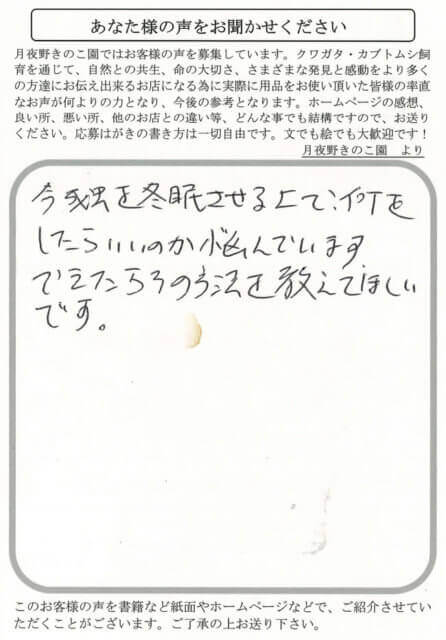 あなた様の声をお聞かせください
月夜野きのこ園ではお客様の声を募集しています。クワガタ・カブトムシ飼
育を通じて、自然との共生、命の大切さ、さまざまな発見と感動をより多く
の方達にお伝え出来るお店になる為に実際に用品をお使い頂いた皆様の率直
なお声が何よりの力となり、今後の参考となります。ホームページの感想、
良い所、悪い所、他のお店との違い等、どんな事でも結構ですので、お送り
ください。応募はがきの書き方は一切自由です。文でも絵でも大歓迎です！
月夜野きのこ園　より
今成虫を冬眠させる上で、何を
したらいいのか悩んでいます
できたらその方法を教えてほしい
です。
このお客様の声を書籍など紙面やホームページなどで、ご紹介させてい
ただくことがございます。ご了承の上お送り下さい。